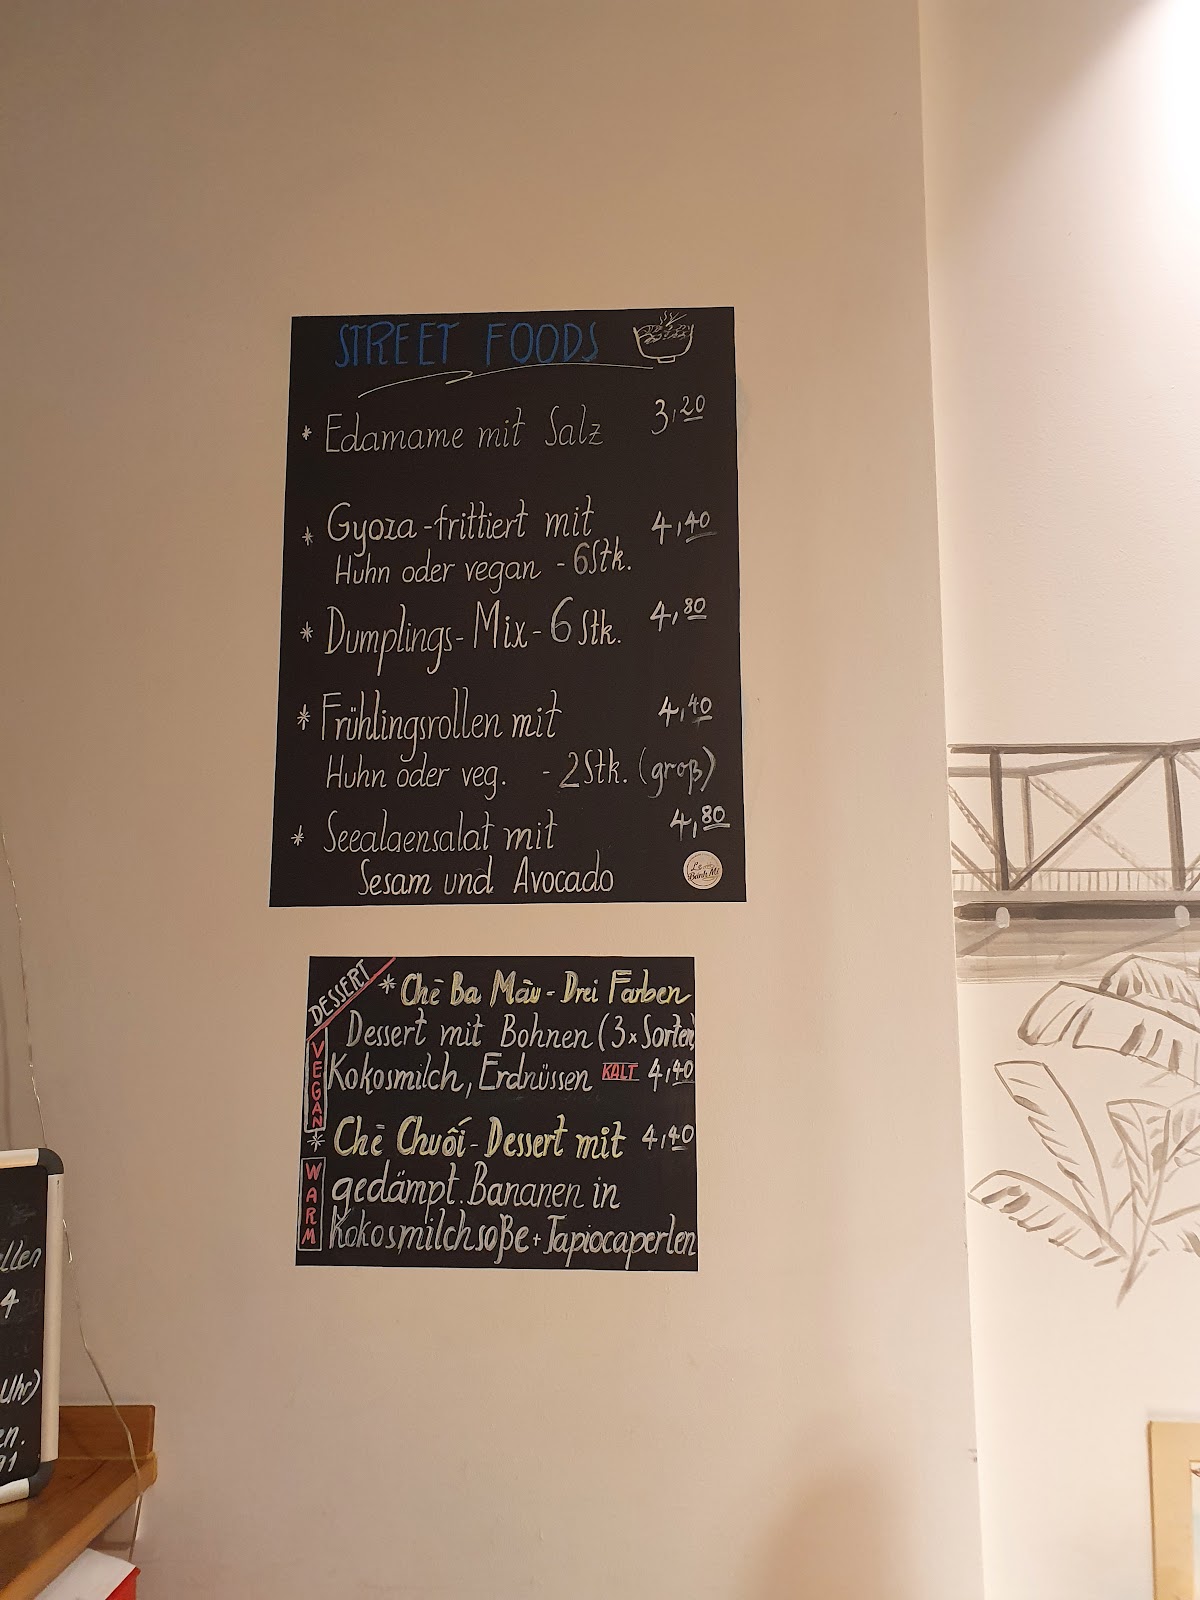 STREET FOODS
* Edamame mit Salz 3,20
* Gyoza - frittiert mit 4,40
Huhn oder vegan - 6 Stk.
* Dumplings - Mix - 6 Stk. 4,80
* Frühlingsrollen mit 4,40
Huhn oder veg. - 2 Stk. (groß)
* Seealgensalat mit 4,80
Sesam und Avocado
Bánh Mì
DESSERT
* Chè Ba Màu - Drei Farben
Dessert mit Bohnen (3x Sorten)
Kokosmilch, Erdnüssen KALT 4,40
VEGAN
* Chè Chuối - Dessert mit 4,40
gedämpt. Bananen in
Kokosmilchsoße + Tapiocaperlen
WARM
llen
4
Uhr)
en.
91